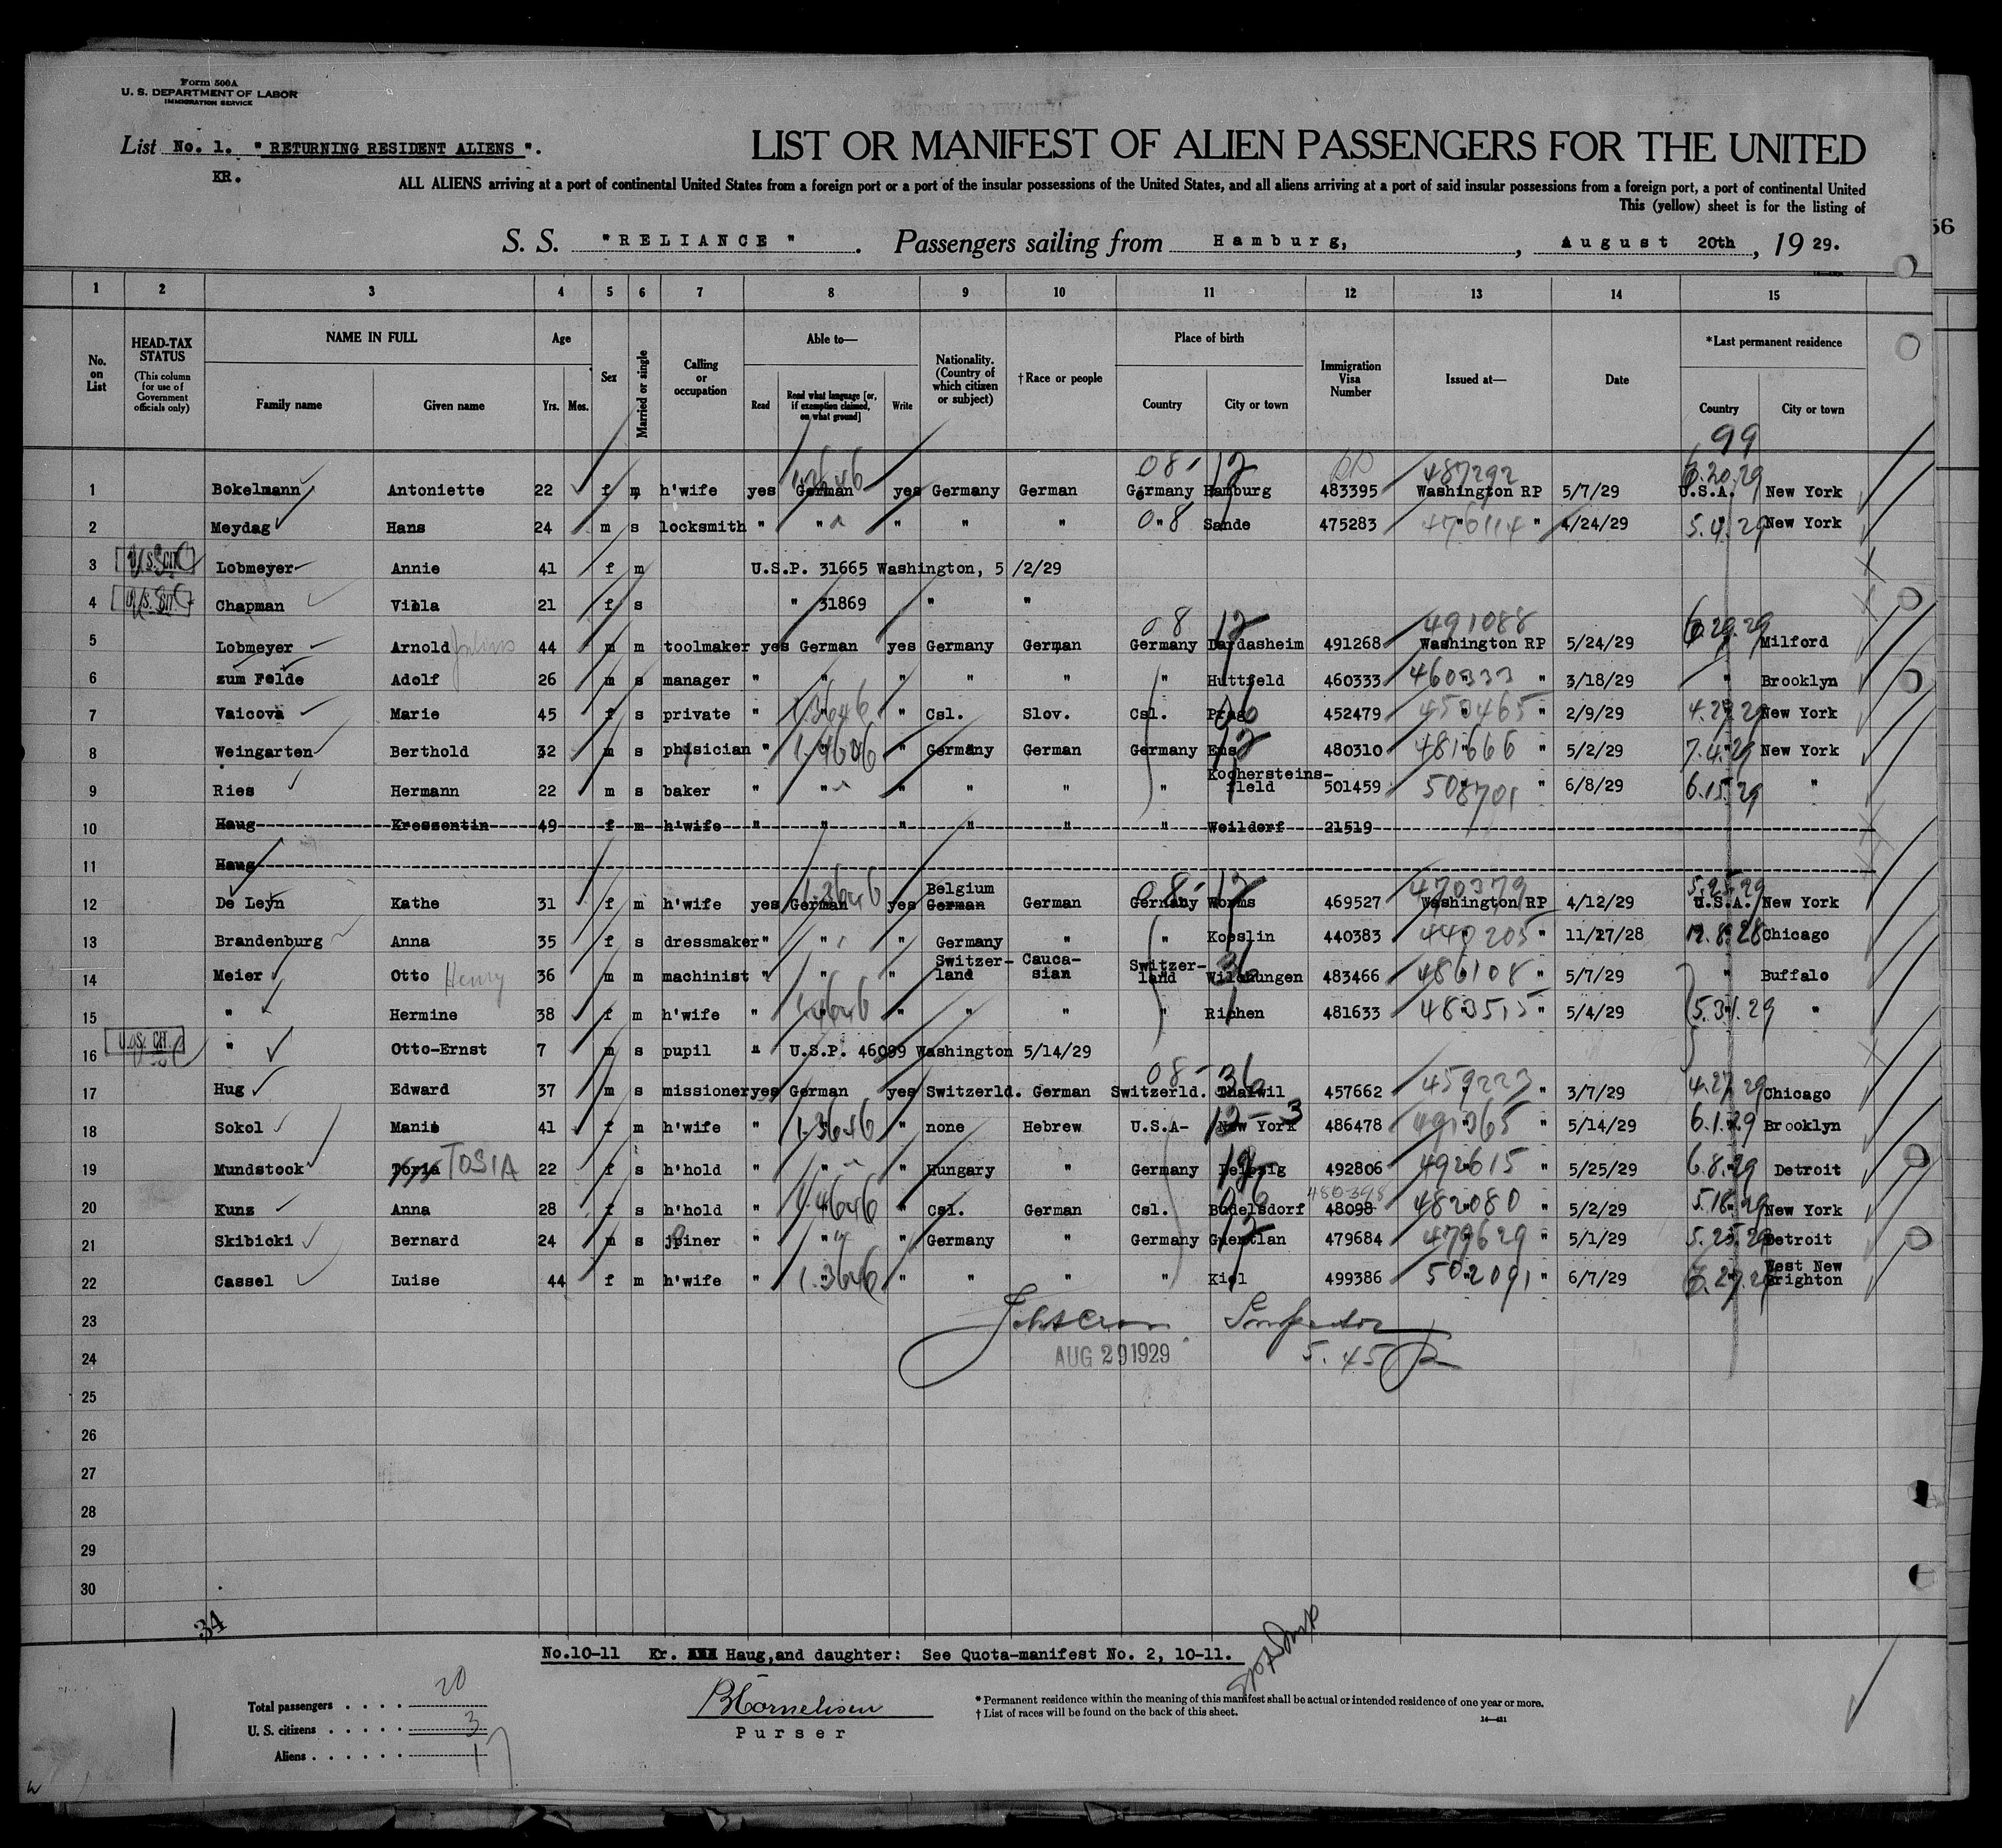 Form 500A
U. S. DEPARTMENT OF LABOR
IMMIGRATION SERVICE
List No. 1. " RETURNING RESIDENT ALIENS ".
KR.
LIST OR MANIFEST OF ALIEN PASSENGERS FOR THE UNITED
ALL ALIENS arriving at a port of continental United States from a foreign port or a port of the insular possessions of the United States, and all aliens arriving at a port of said insular possessions from a foreign port, a port of continental United
This (yellow) sheet is for the listing of
S. S. "RELIANCE" . Passengers sailing from Hamburg, , August 20th , 19 29.
56
1 2 3 4 5 6 7 8 9 10 11 12 13 14 15
No. on List
HEAD-TAX STATUS (This column for use of Government officials only)
NAME IN FULL Family name Given name
Age Yrs. Mos.
Sex
Married or single
Calling or occupation
Able to— Read Read what language [or, if exemption claimed, on what ground] Write
Nationality. (Country of which citizen or subject)
†Race or people
Place of birth Country City or town
Immigration Visa Number
Issued at—
Date
*Last permanent residence Country City or town
99
08- 12 487292 6.20.29
1 Bokelmann Antoniette 22 f m h'wife yes German yes Germany German Germany Hamburg 483395 Washington RP 5/7/29 U.S.A. New York
2 Meydag Hans 24 m s locksmith " " " " " " Sande 475283 476114 " 4/24/29 5.4.29 New York
3 U.S. CIT Lobmeyer Annie 41 f m U.S.P. 31665 Washington, 5 /2/29
4 U.S. CIT Chapman Viola 21 f s " 31869 " "
08 12 491088 6.29.29
5 Lobmeyer Arnold Julius 44 m m toolmaker yes German yes Germany German Germany Dardasheim 491268 Washington RP 5/24/29 Milford
6 zum Felde Adolf 26 m s manager " " " " " " Huttfeld 460333 460333 " 3/18/29 " Brooklyn
7 Vaicova Marie 45 f s private " " " Csl. Slov. Csl. Prag 452479 450465 " 2/9/29 4.27.29 New York
8 Weingarten Berthold 32 m s phisician " " " Germany German Germany Ems 480310 481666 " 5/2/29 7.4.29 New York
9 Ries Hermann 22 m s baker " " " " " " Kochersteins-field 501459 508701 " 6/8/29 6.15.29 "
10 Haug Kressentin 49 f m h'wife " " " " " " Weildorf 21519
11 Haug
08- 12 470379 5.25.29
12 De Leyn Kathe 31 f m h'wife yes German yes Belgium German German Germany Worms 469527 Washington RP 4/12/29 U.S.A. New York
13 Brandenburg Anna 35 f s dressmaker " " " Germany " " Koeslin 440383 440205 " 11/27/28 12.8.28 Chicago
14 Meier Otto Henry 36 m m machinist " " " Switzer-land Cauca-sian Switzer-land Wilchungen 483466 486108 " 5/7/29 " Buffalo
15 " Hermine 38 f m h'wife " " " " " " Riehen 481633 483515 " 5/4/29 5.31.29 "
16 U.S. CIT. " Otto-Ernst 7 m s pupil " U.S.P. 46099 Washington 5/14/29
08- 36
17 Hug Edward 37 m s missioner yes German yes Switzerld. German Switzerld. Thalwil 457662 459223 " 3/7/29 4.27.29 Chicago
18 Sokol Manie 41 f m h'wife " " " none Hebrew U.S.A- New York 486478 491365 " 5/14/29 6.1.29 Brooklyn
19 Mundstock TOSIA 22 f s h'hold " " " Hungary " Germany Leipzig 492806 492615 " 5/25/29 6.8.29 Detroit
20 Kunz Anna 28 f s h'hold " " " Csl. German Csl. Budelsdorf 48098 480398 482080 " 5/2/29 5.18.29 New York
21 Skibicki Bernard 24 m s joiner " " " Germany " Germany 479684 479629 " 5/1/29 5.25.29 Detroit
22 Cassel Luise 44 f m h'wife " " " " " " Kiel 499386 502091 " 6/7/29 6.27.29 West New Brighton
23 Inspector
24 AUG 29 1929 5.45
25
26
27
28
29
30
34
No.10-11 Kr. Haug,and daughter: See Quota-manifest No. 2, 10-11.
Total passengers . . . . 20
U. S. citizens . . . . . 3
Aliens . . . . . . 17
BCornelisen
Purser
* Permanent residence within the meaning of this manifest shall be actual or intended residence of one year or more.
† List of races will be found on the back of this sheet.
14—431